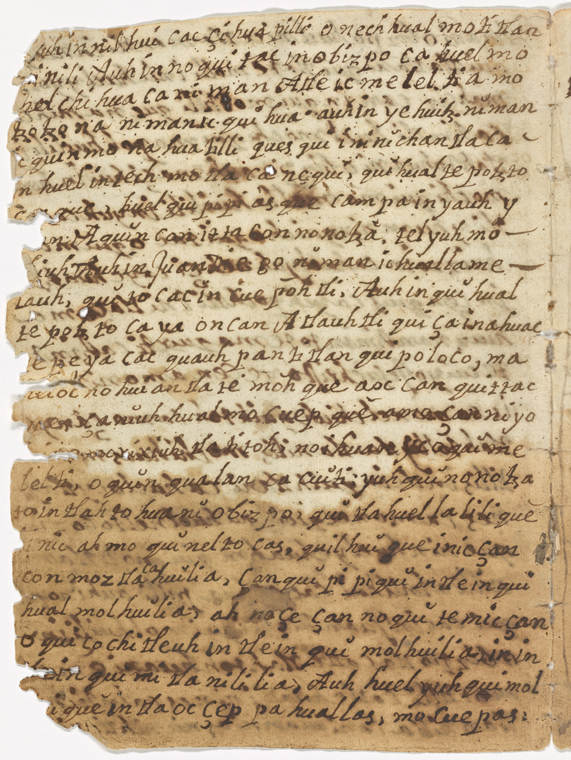 yuhin nil hui cac çihuapilli o nech hual mo titlan
nili Auh in no qui ttac in obizpo ca huel mo
nel chi hua ca ni man Atle ic mel el tza mo
tzo tzo na niman ic qui hua auh in ye huitz niman
quin mo na hua tilli ques qui in ni chan tla ca
in huel intech mo tla ca nequi, qui hual te potz to
ca que, huel qui pi pias que campa in yauh y
Aquin can itta con no notza, tel yuh mo
chiuh tzin Juan die go niman ic huallame
lauh, qui to cac in cue poh tli, Auh in qui hual
te potz to ca ya oncan Atlauh tli qui ça inahuac
te pe ya cac quauh pan titlan qui poloco, ma
oc no hui an tla te moh que aoc can quittac
huel mo cuep que amo çan ni yo
no ihuan
lel ti, o quin qualan ca cuiti yuh qui no no tza
to in tlah to huani obizpo, qui tlahuel la lili que
inic ah mo qui nel to cas, quil hui que inic çan
con moz tla ca huilia, çan qui pi piqui in tlein qui
hual mol huilia, ah noce çan no qui te mic çan
o qui çochi tleuh in tlein qui mol huilia, in in
tlein qui mi tla nililia, Auh huel yuh qui mol
hui que in tla oc çep pa huallas, mo cue pas